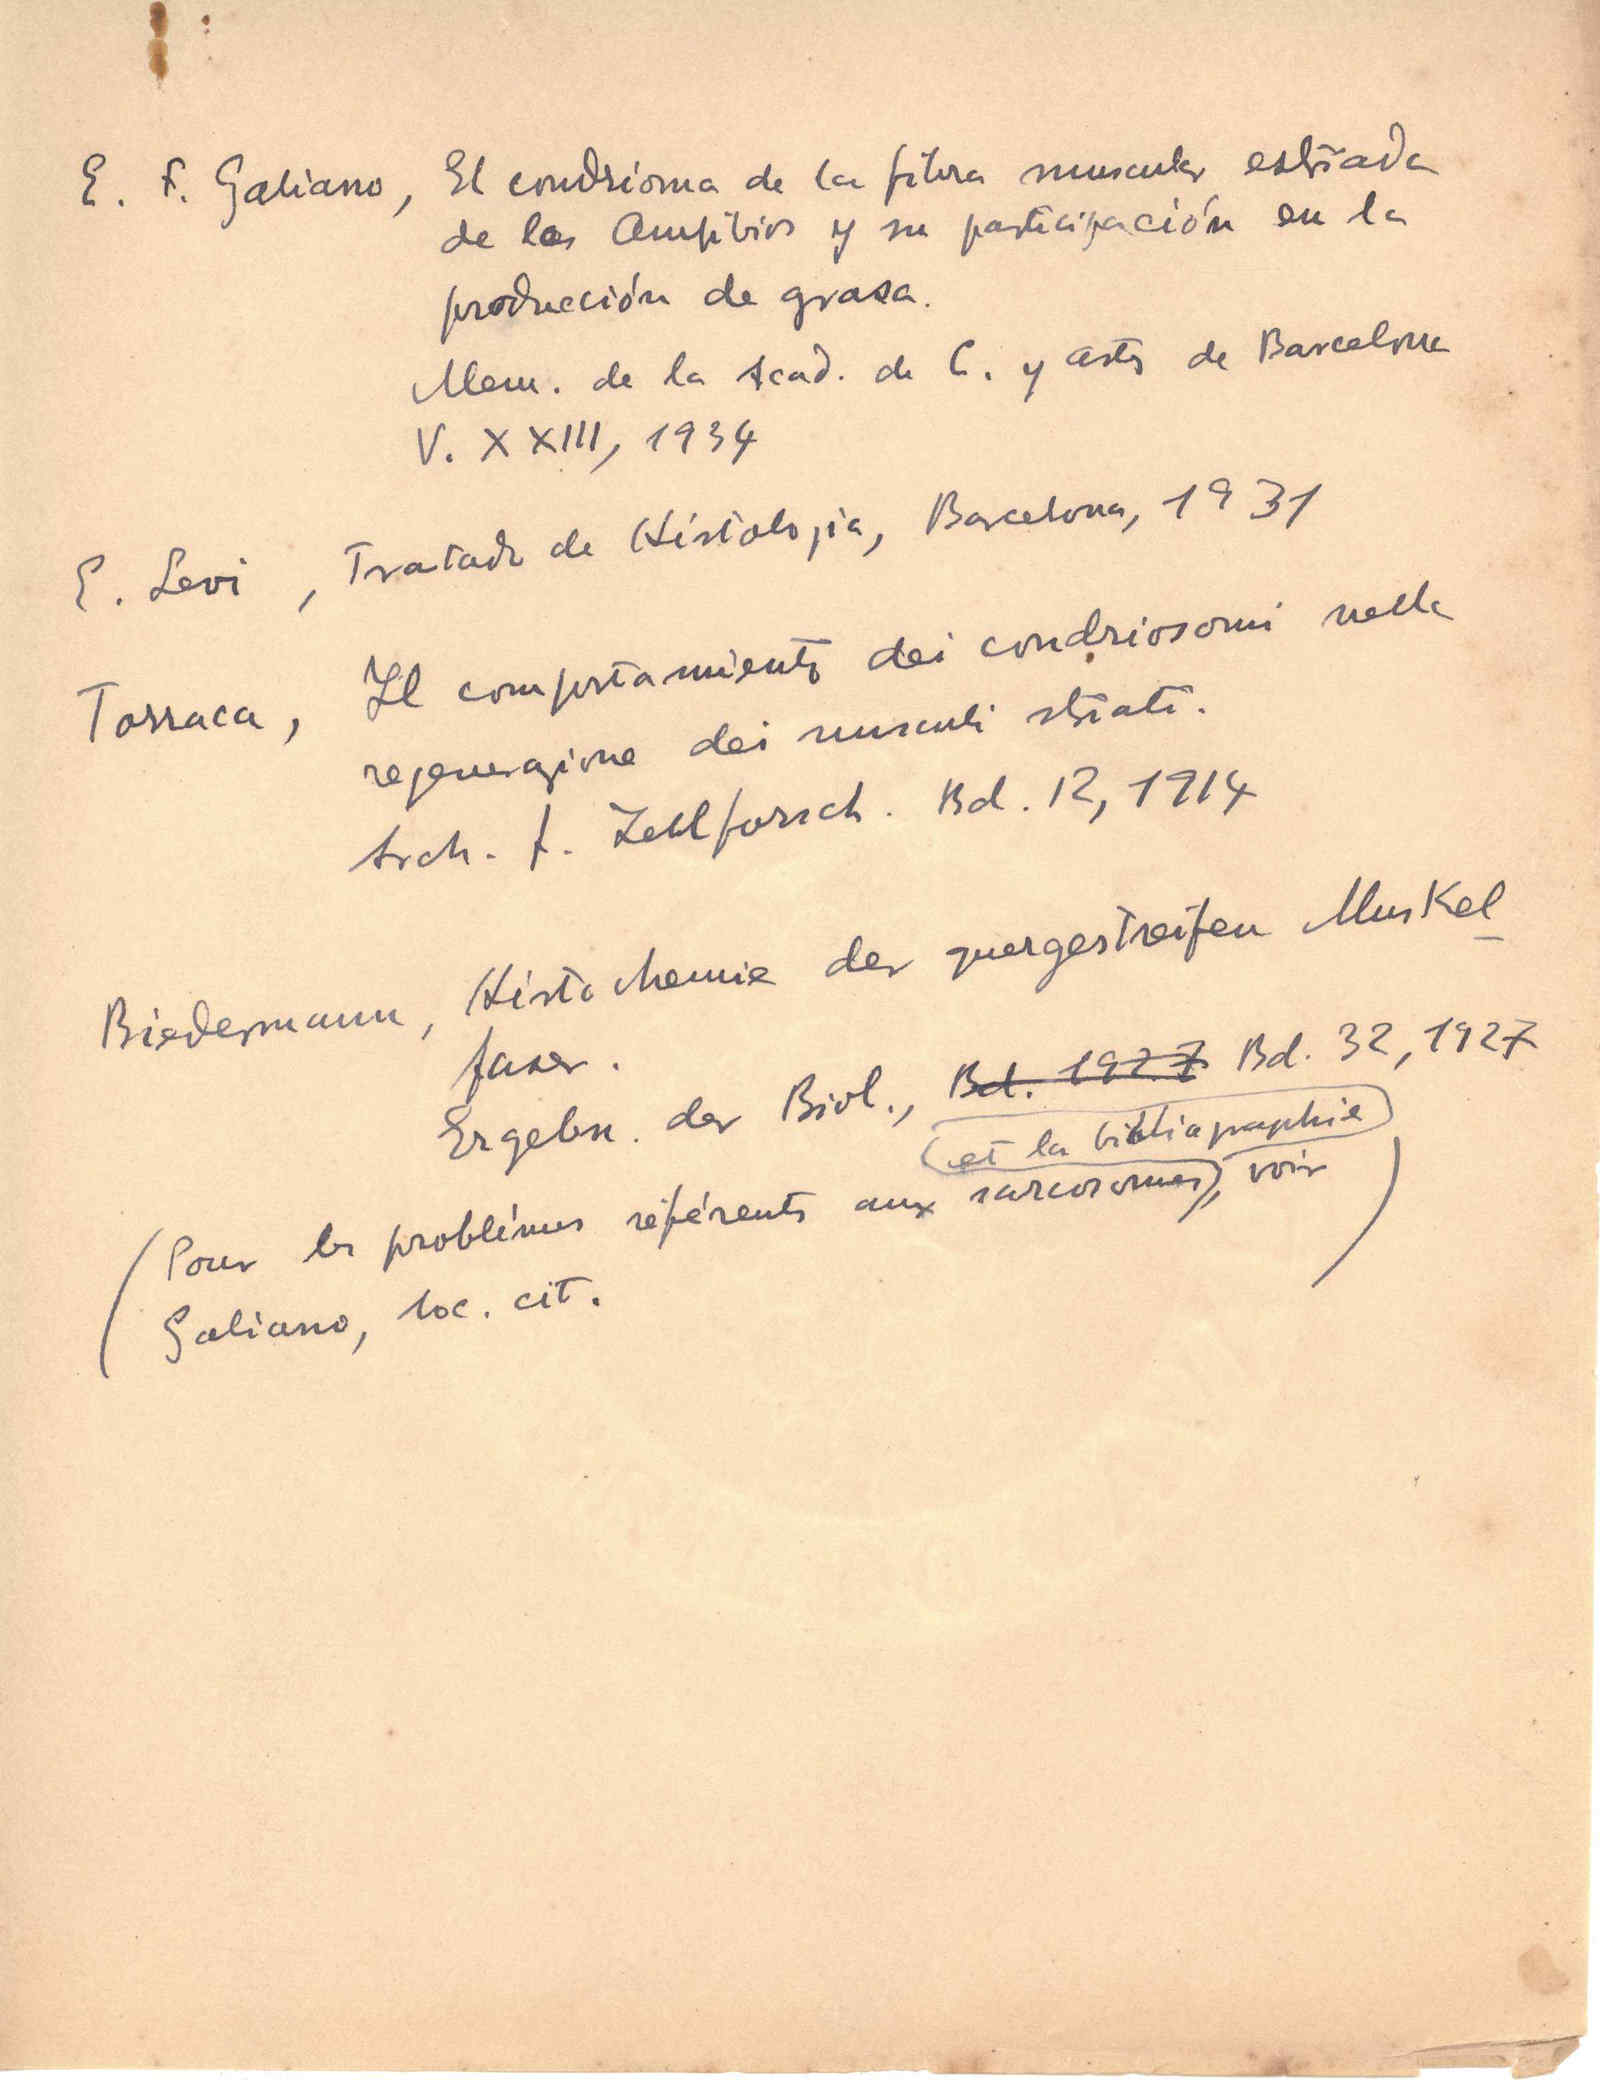 E. F. Galiano, El condrioma de la fibra muscular estriada
de los Anfibios y su participación en la
producción de grasa.
Mem. de la Acad. de C. y Artes de Barcelona
V. XXIII, 1934
E. Levi, Tratado de Histologia, Barcelona, 1931
Torraca, Il comportamiento dei condriosomi nella
regenerazione dei musculi striati.
Arch. f. Zellforsch. Bd. 12, 1914
Biedermann, Histochemie der quergestreifen Muskel
faser.
Ergebn. der Biol., Bd. 1927 Bd. 32, 1927
(et la bibliographie)
(Pour les problémes référents aux sarcosomes, voir
Galiano, loc. cit. )